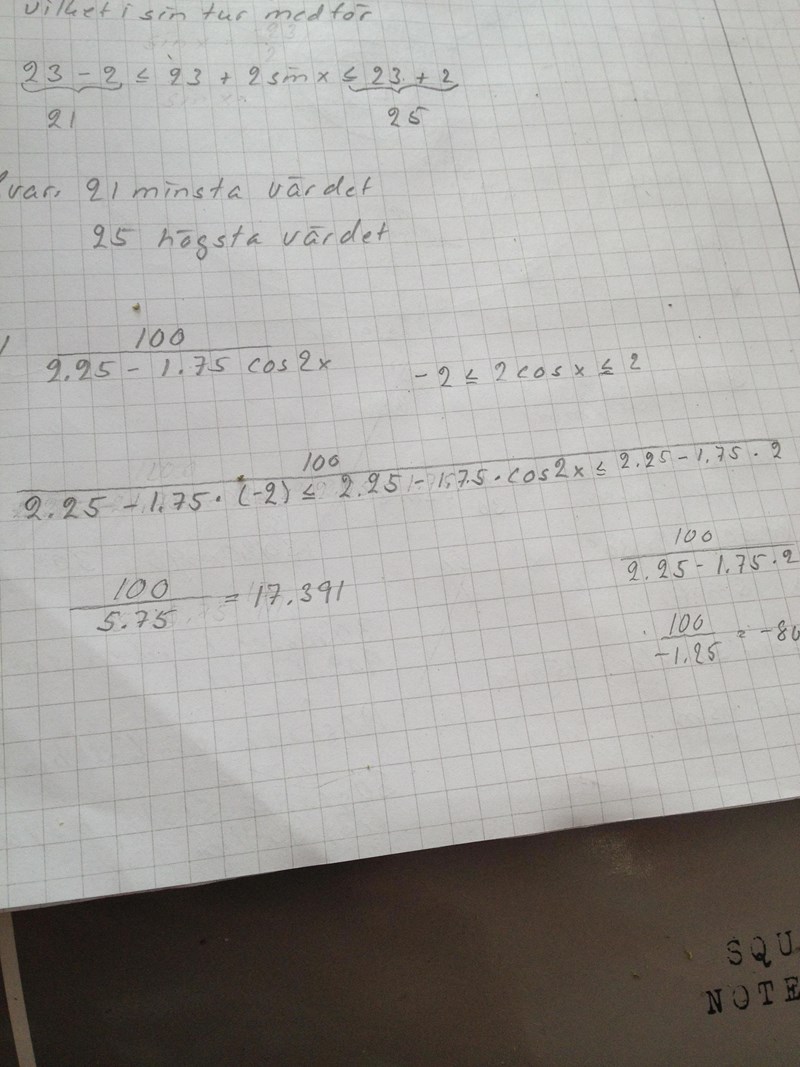 vilket i sin tur medför
23 - 2 ≤ 23 + 2 sin x ≤ 23 + 2
21 25
var. 21 minsta värdet
25 högsta värdet
100
2.25 - 1.75 cos 2x
-2 ≤ 2 cos x ≤ 2
100
2.25 - 1.75 · (-2) ≤ 2.25 - 1.75 · cos 2x ≤ 2.25 - 1.75 · 2
100
5.75 = 17.391
100
2.25 - 1.75 · 2
100
-1.25 = -80
SQU
NOTE